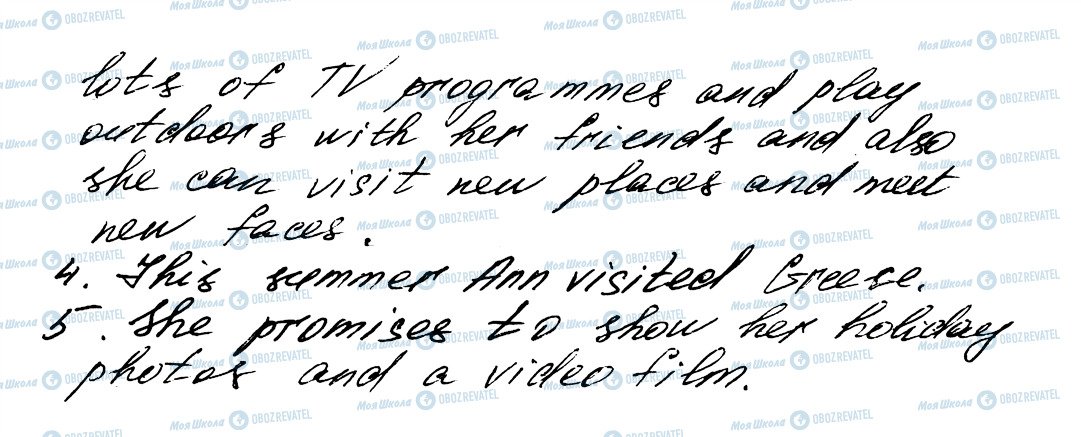 lots of TV programmes and play
outdoors with her friends and also
she can visit new places and meet
new faces.
4. This summer Ann visited Greese.
5. She promises to show her holiday
photos and a video film.